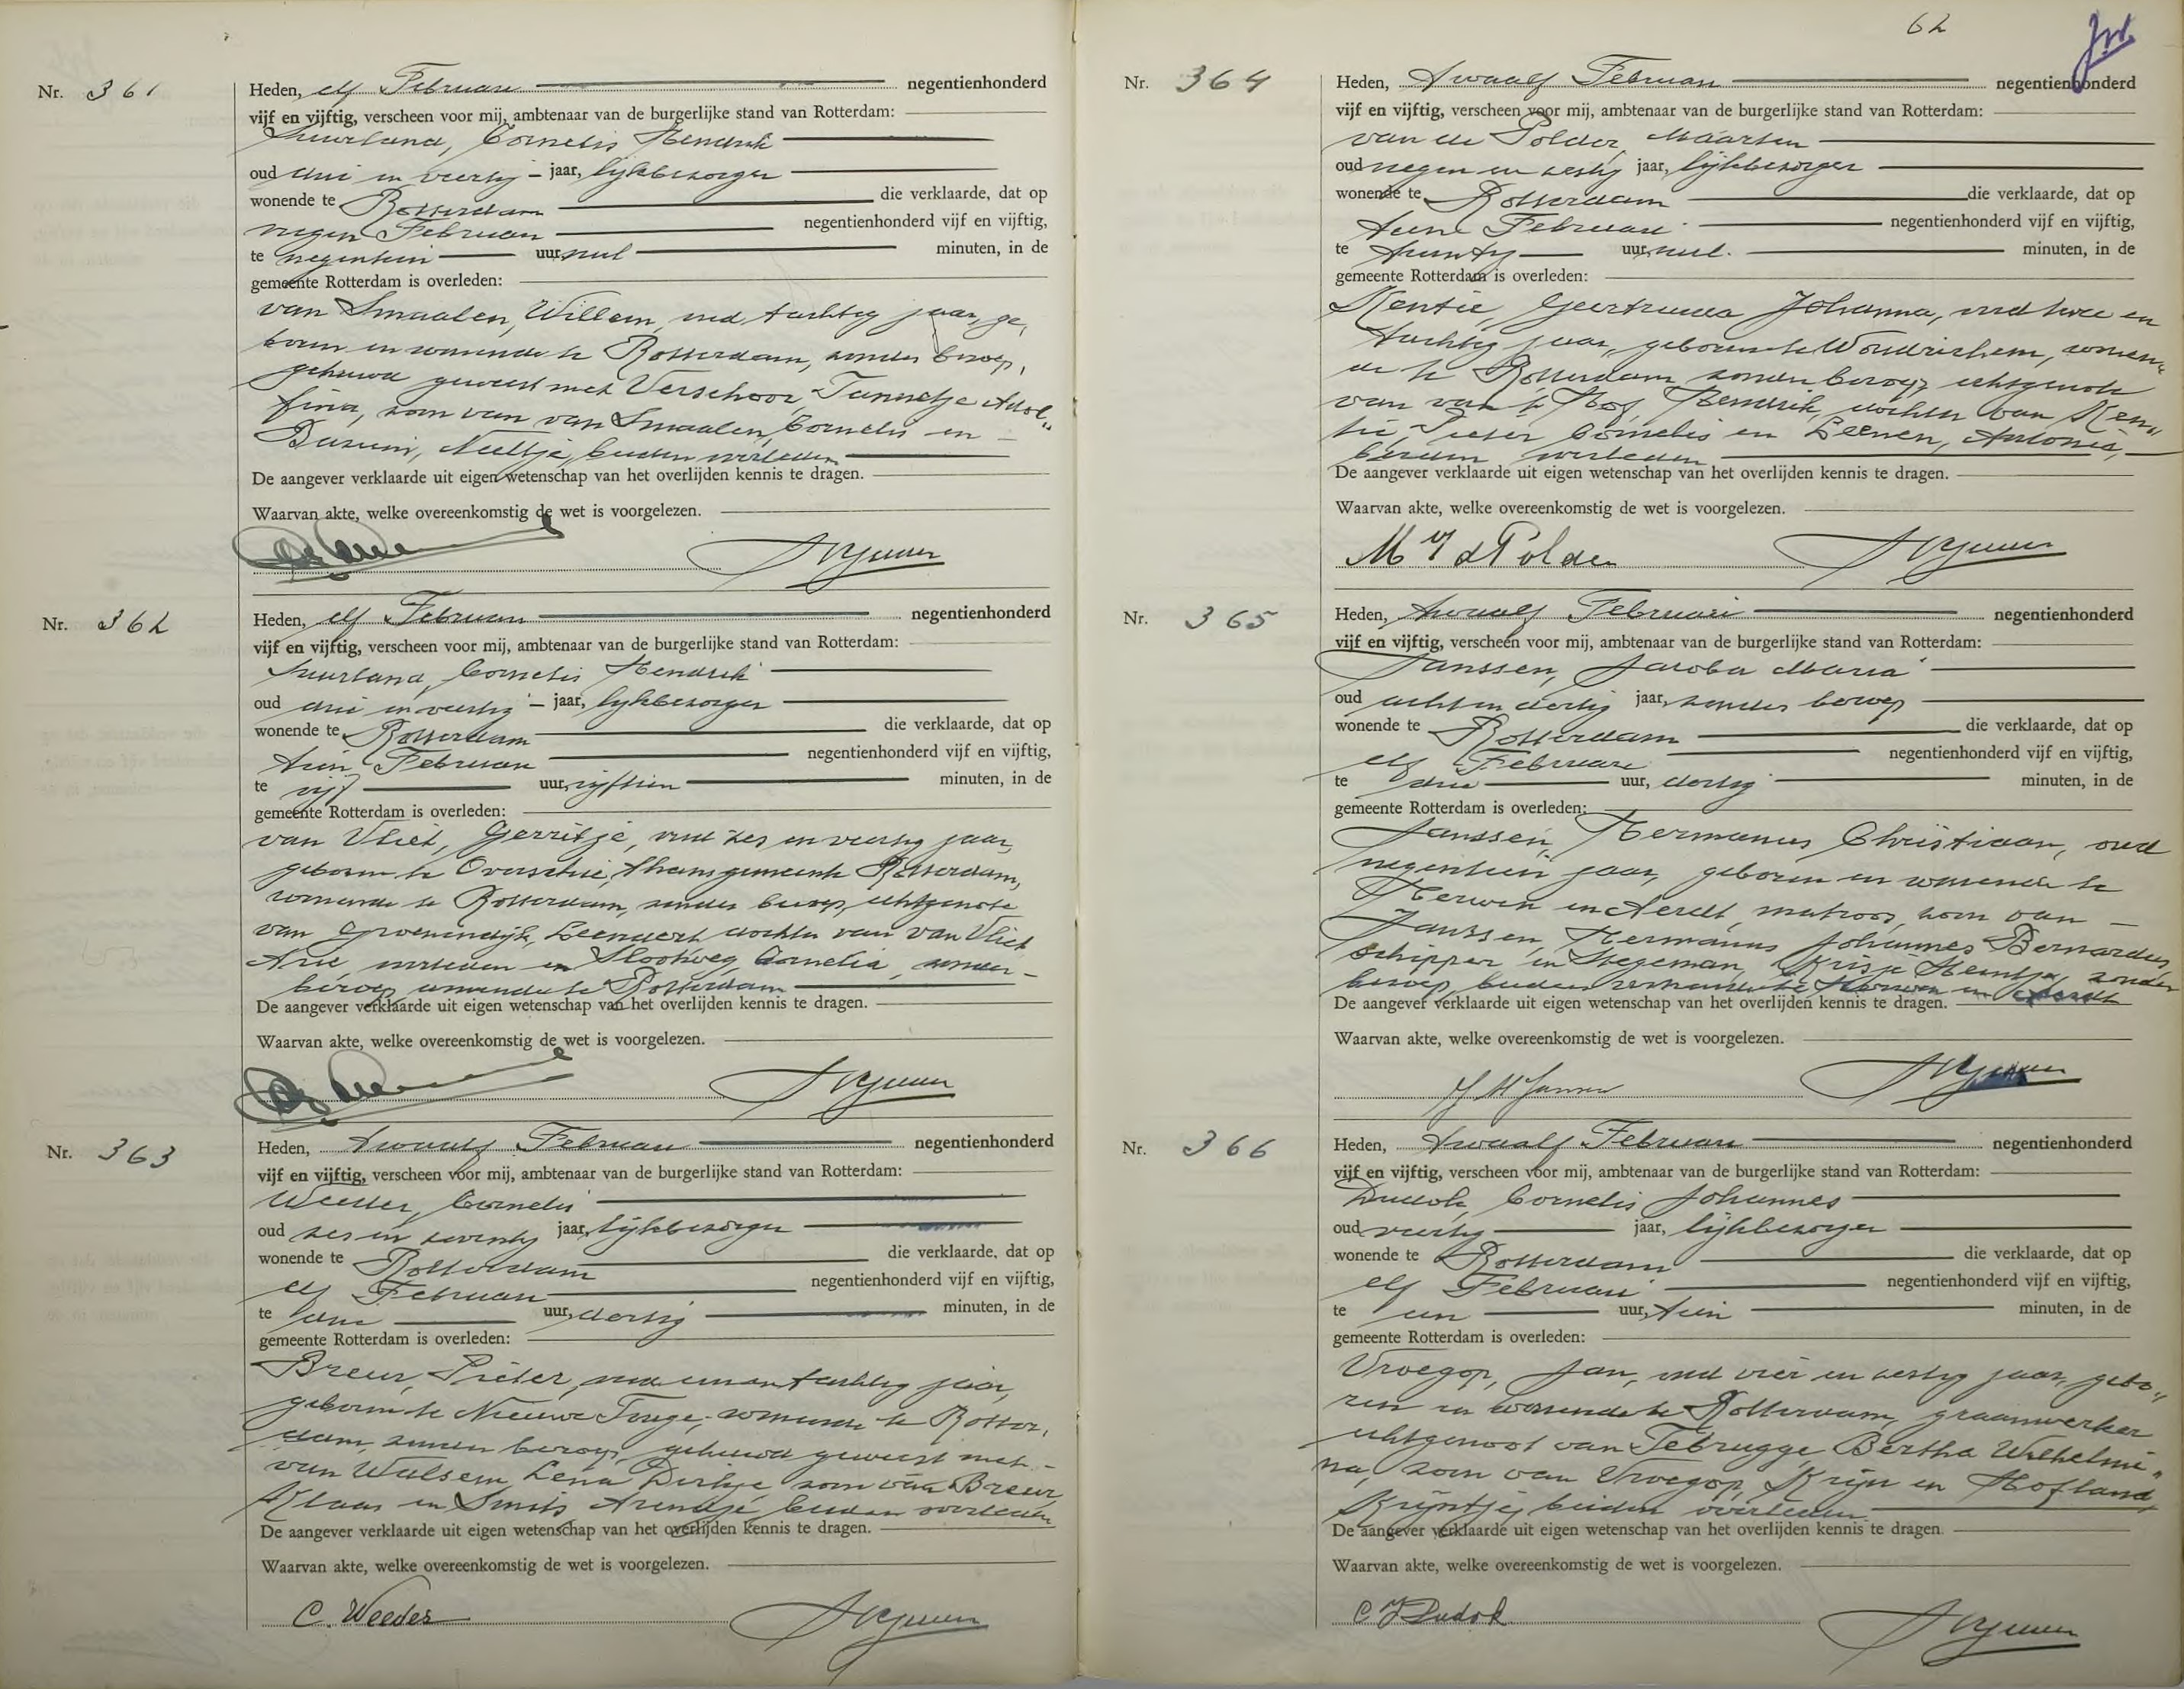 Nr. 361
Heden, elf Februari negentienhonderd
vijf en vijftig, verscheen voor mij, ambtenaar van de burgerlijke stand van Rotterdam:
Suurland, Cornelis Hendrik
oud drie en veertig jaar, lijkbezorger
wonende te Rotterdam die verklaarde, dat op
negen Februari negentienhonderd vijf en vijftig,
te negentien uur, nul minuten, in de
gemeente Rotterdam is overleden:
van Smaalen, Willem, oud tachtig jaar, ge-
boren en wonende te Rotterdam, zonder beroep,
gehuwd geweest met Verschoor, Tannetje Adol-
fina, zoon van van Smaalen, Cornelis en
Neeltje, beiden overleden
De aangever verklaarde uit eigen wetenschap van het overlijden kennis te dragen.
Waarvan akte, welke overeenkomstig de wet is voorgelezen.
Nr. 362
Heden, elf Februari negentienhonderd
vijf en vijftig, verscheen voor mij, ambtenaar van de burgerlijke stand van Rotterdam:
Suurland, Cornelis Hendrik
oud drie en veertig jaar, lijkbezorger
wonende te Rotterdam die verklaarde, dat op
tien Februari negentienhonderd vijf en vijftig,
te vijf uur, vijftien minuten, in de
gemeente Rotterdam is overleden:
van Vliet, Gerritje, oud zes en veertig jaar,
geboren te Overschie, thans gemeente Rotterdam,
wonende te Rotterdam, zonder beroep, echtgenote
van Groenendijk, Leendert, dochter van van Vliet
Arie, overleden en Slootweg, Cornelia, zonder
beroep, wonende te Rotterdam
De aangever verklaarde uit eigen wetenschap van het overlijden kennis te dragen.
Waarvan akte, welke overeenkomstig de wet is voorgelezen.
Nr. 363
Heden, twaalf Februari negentienhonderd
vijf en vijftig, verscheen voor mij, ambtenaar van de burgerlijke stand van Rotterdam:
Weeder, Cornelis
oud zes en zeventig jaar, lijkbezorger
wonende te Rotterdam die verklaarde, dat op
elf Februari negentienhonderd vijf en vijftig,
te uur, dertig minuten, in de
gemeente Rotterdam is overleden:
Breur, Pieter, oud een en tachtig jaar,
geboren te Nieuwe Tonge, wonende te Rotter-
dam, zonder beroep, gehuwd geweest met
van Walsem, Lena Dirkje, zoon van Breur,
Klaas en Smits, Arendje, beiden overleden
De aangever verklaarde uit eigen wetenschap van het overlijden kennis te dragen.
Waarvan akte, welke overeenkomstig de wet is voorgelezen.
C. Weeder
62
Nr. 364
Heden, twaalf Februari negentienhonderd
vijf en vijftig, verscheen voor mij, ambtenaar van de burgerlijke stand van Rotterdam:
van de Polder, Maarten
oud negen en zestig jaar, lijkbezorger
wonende te Rotterdam die verklaarde, dat op
tien Februari negentienhonderd vijf en vijftig,
te twintig uur, nul minuten, in de
gemeente Rotterdam is overleden:
Kentie, Geertruida Johanna, oud twee en
tachtig jaar, geboren te Woudrichem, wonen-
de te Rotterdam, zonder beroep, echtgenote
van van 't Hof, Hendrik, dochter van Ken-
tie, Pieter Cornelis en Leenen, Antonia,
beiden overleden
De aangever verklaarde uit eigen wetenschap van het overlijden kennis te dragen.
Waarvan akte, welke overeenkomstig de wet is voorgelezen.
M v d Polder
Nr. 365
Heden, twaalf Februari negentienhonderd
vijf en vijftig, verscheen voor mij, ambtenaar van de burgerlijke stand van Rotterdam:
Janssen, Jacoba Maria
oud acht en dertig jaar, zonder beroep
wonende te Rotterdam die verklaarde, dat op
elf Februari negentienhonderd vijf en vijftig,
te drie uur, dertig minuten, in de
gemeente Rotterdam is overleden:
Janssen, Hermanus Christiaan, oud
negentien jaar, geboren en wonende te
Herwen en Aerdt, matroos, zoon van
Janssen, Hermanus Johannes Bernardus,
schipper en Stegeman, Krisje Hentje, zonder
beroep, beiden wonende te Herwen en Aerdt
De aangever verklaarde uit eigen wetenschap van het overlijden kennis te dragen.
Waarvan akte, welke overeenkomstig de wet is voorgelezen.
Nr. 366
Heden, twaalf Februari negentienhonderd
vijf en vijftig, verscheen voor mij, ambtenaar van de burgerlijke stand van Rotterdam:
Dudok, Cornelis Johannes
oud veertig jaar, lijkbezorger
wonende te Rotterdam die verklaarde, dat op
elf Februari negentienhonderd vijf en vijftig,
te een uur, tien minuten, in de
gemeente Rotterdam is overleden:
Vroegop, Jan, oud vier en zestig jaar, gebo-
ren en wonende te Rotterdam, graanwerker
echtgenoot van Tebrugge, Bertha Wilhelmi-
na, zoon van Vroegop, Krijn en Hofland,
Krijntje, beiden overleden
De aangever verklaarde uit eigen wetenschap van het overlijden kennis te dragen.
Waarvan akte, welke overeenkomstig de wet is voorgelezen.
C J Dudok